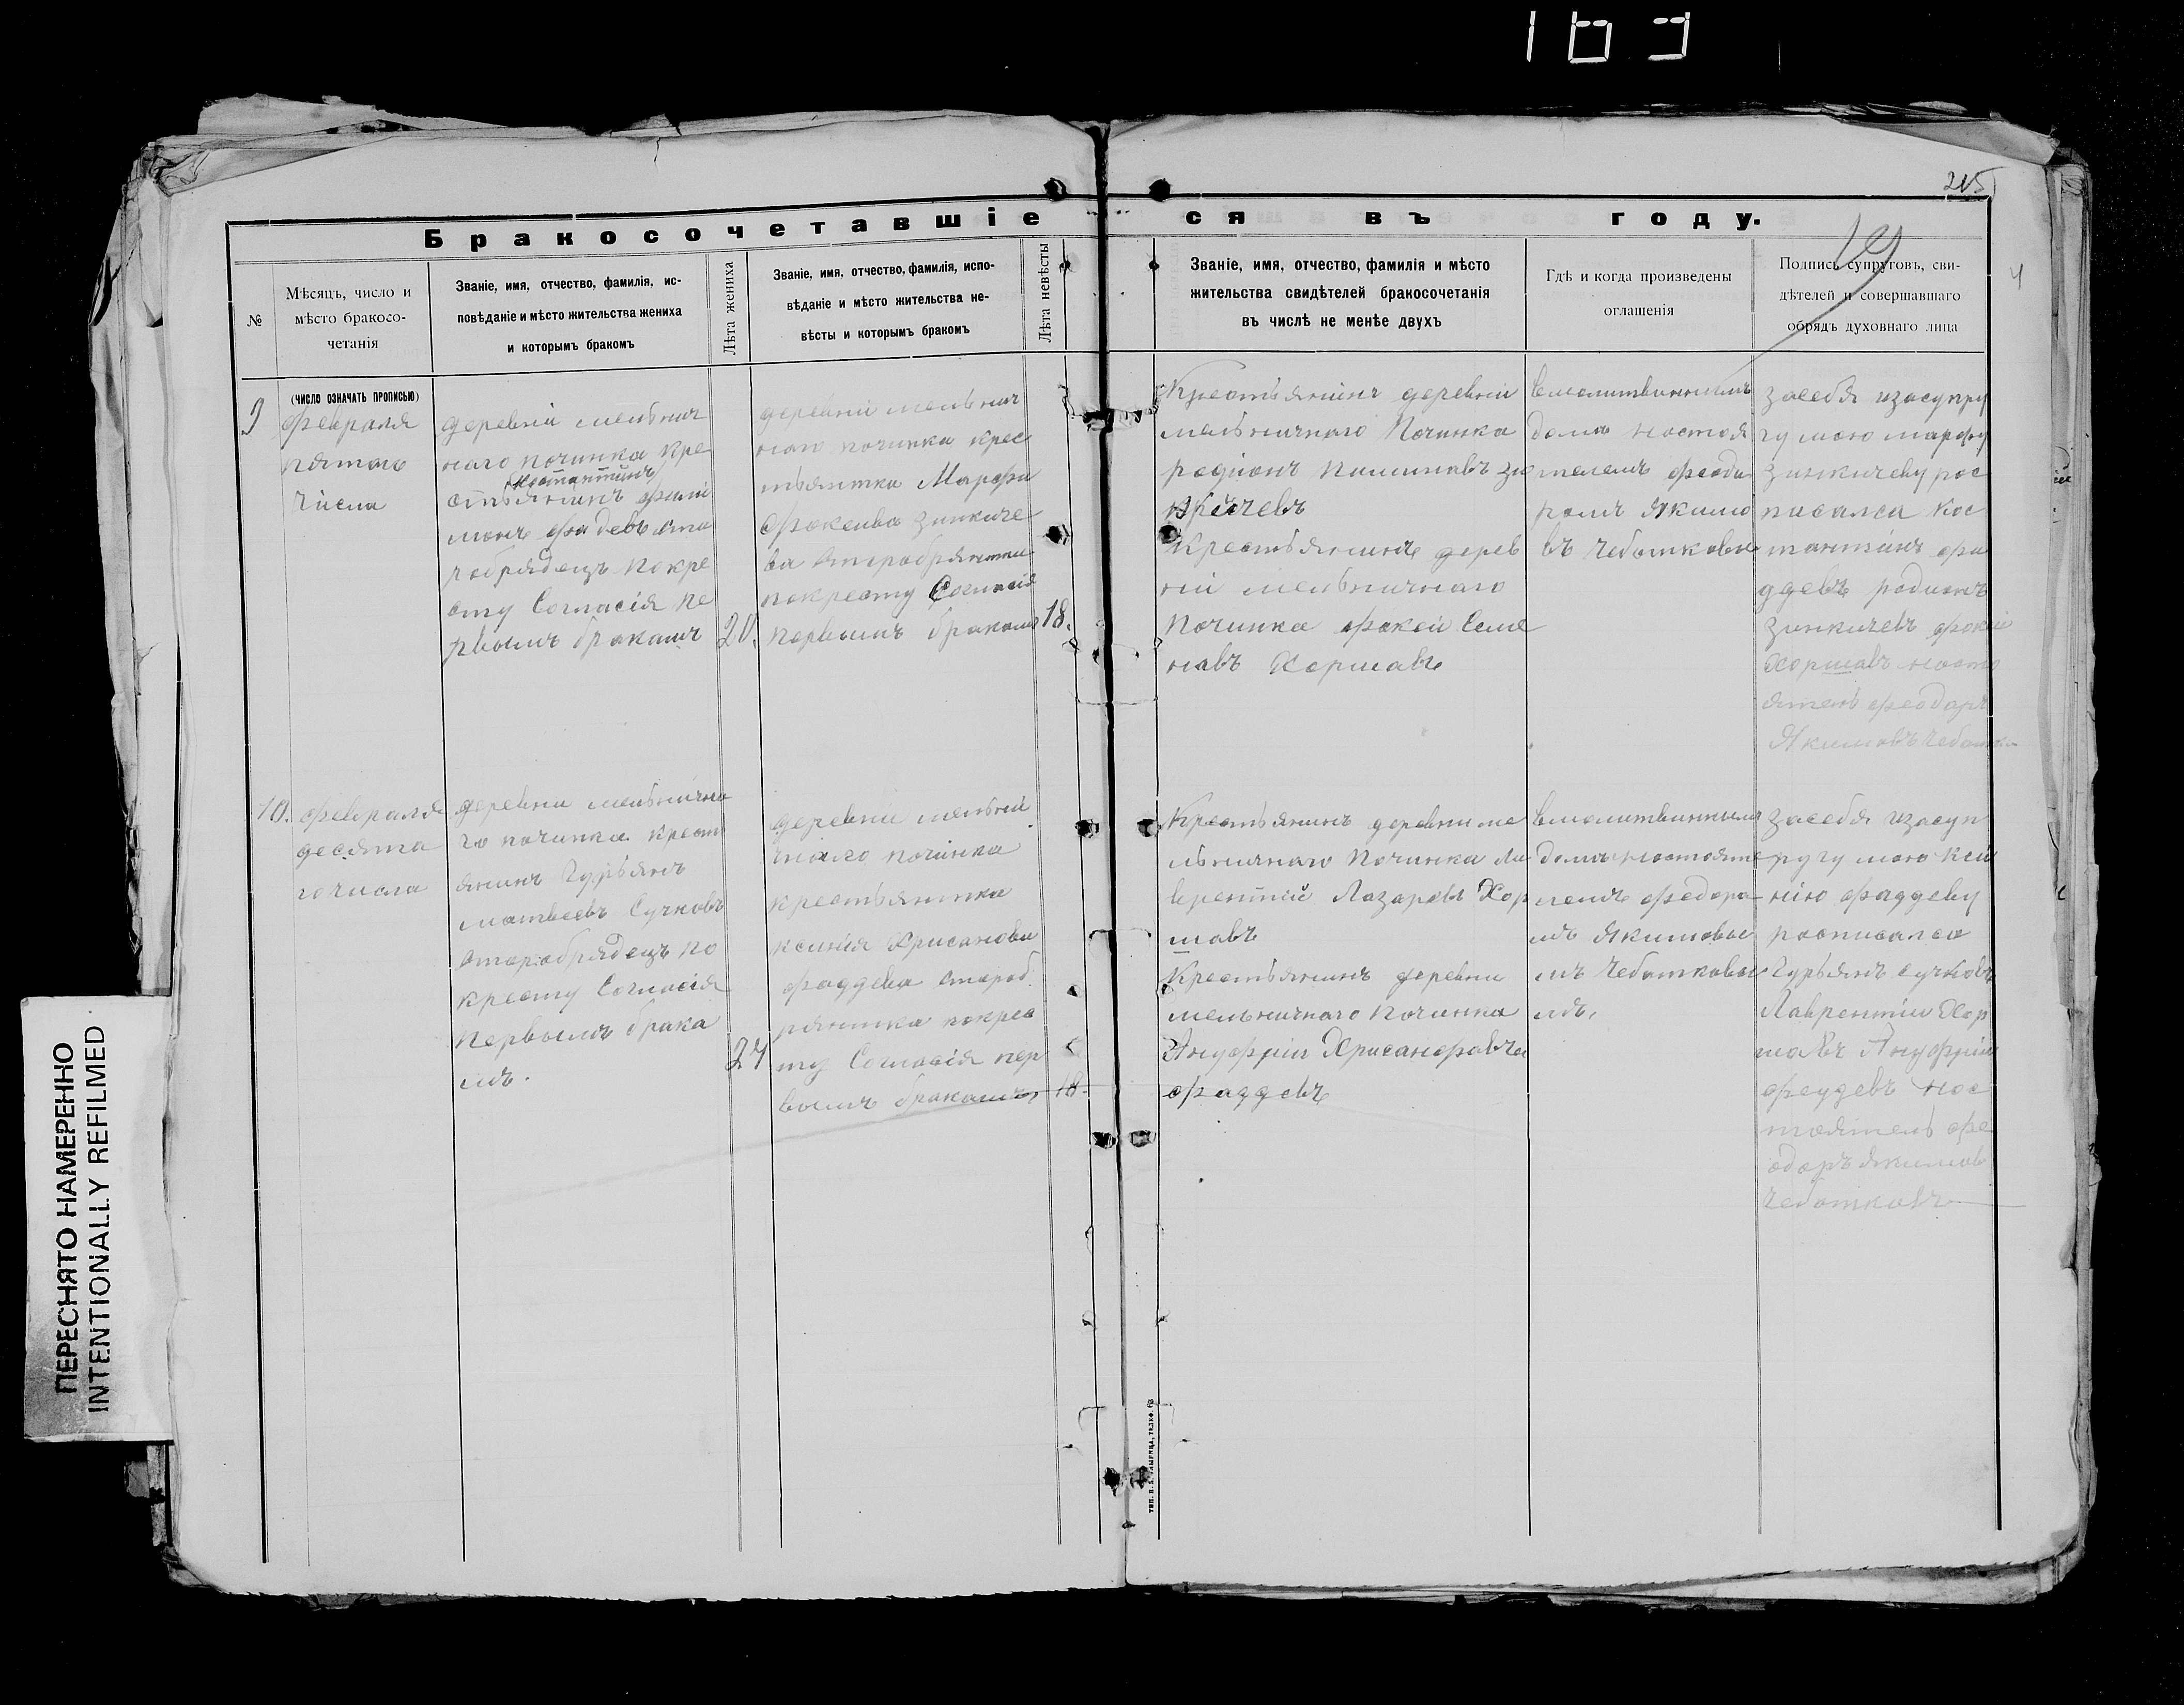 163
215
19
4
Бракосочетавшіеся въ году.
№
Мѣсяцъ, число и
мѣсто бракосо-
четанія
Званіе, имя, отчество, фамилія, ис-
повѣданіе и мѣсто жительства жениха
и которымъ бракомъ
Лѣта жениха
Званіе, имя, отчество, фамилія, испо-
вѣданіе и мѣсто жительства не-
вѣсты и которымъ бракомъ
Лѣта невѣсты
Званіе, имя, отчество, фамилія и мѣсто
жительства свидѣтелей бракосочетанія
въ числѣ не менѣе двухъ
Гдѣ и когда произведены
оглашенія
Подпись супруговъ, сви-
дѣтелей и совершавшаго
обрядъ духовнаго лица
(число означать прописью)
9
февраля
пятаго
числа
деревни мельнич
наго починка кре
Костантинъ
стьянинъ фили
монъ фадевъ ста
робрядецъ покре
сту Согласія пе
рвымъ бракамъ
20.
деревни мельнич
наго починка крес
тьянтка Марфа
Фокеива зинкиче
ва старобрянтка
покресту Согласія
первымъ бракамъ
18.
Крестьянинъ деревни
мельничнаго Починка
родионъ зи
нкичевъ
Крестьянинъ дерев
ни мельничнаго
Починка фокеи Семе
навъ Хоршавъ
вмолитвинномъ
дома настоя
телемъ феода
ромъ якимо
въ Чеботковы
засебя изасупру
гу мою марфу
зинкичеву рос
писался кос
тантинъ фа
ддевъ родионъ
зинкичевъ фокеи
Хоршавъ насто
ятель феодаръ
Якимовъ Чеботков
10.
февраля
десята
го числа
деревни мельнична
го починка крест
янинъ Гурьянъ
матвеевъ Сучковъ
старобрядецъ по
кресту Согласія
первымъ брака
мъ.
24
деревни мельни
чнаго починка
крестьянтка
ксения Хрисанова
фаддева староб
рянтка покрес
ту Согласія пер
вымъ бракамъ
18.
Крестьянинъ деревни ме
льничнаго Починка Ла
врентий Лазаревъ Хор
шавъ
Крестьянинъ деревни
мельничнаго Починка
Ануфрии Хрисанфавъ
фаддевъ
вмолитвинным
домъ настояте
лемъ федора
мъ якимовы
мъ Чеботковы
мъ.
засебя изасуп
ругу мою ксе
нию фаддеву
росписался
Гурьянъ сучковъ
Лаврентии Хор
шавъ Ануфрии
фаддевъ нас
тоятель фе
одаръ якимов
Чеботковъ
ПЕРЕСНЯТО НАМЕРЕННО
INTENTIONALLY REFILMED